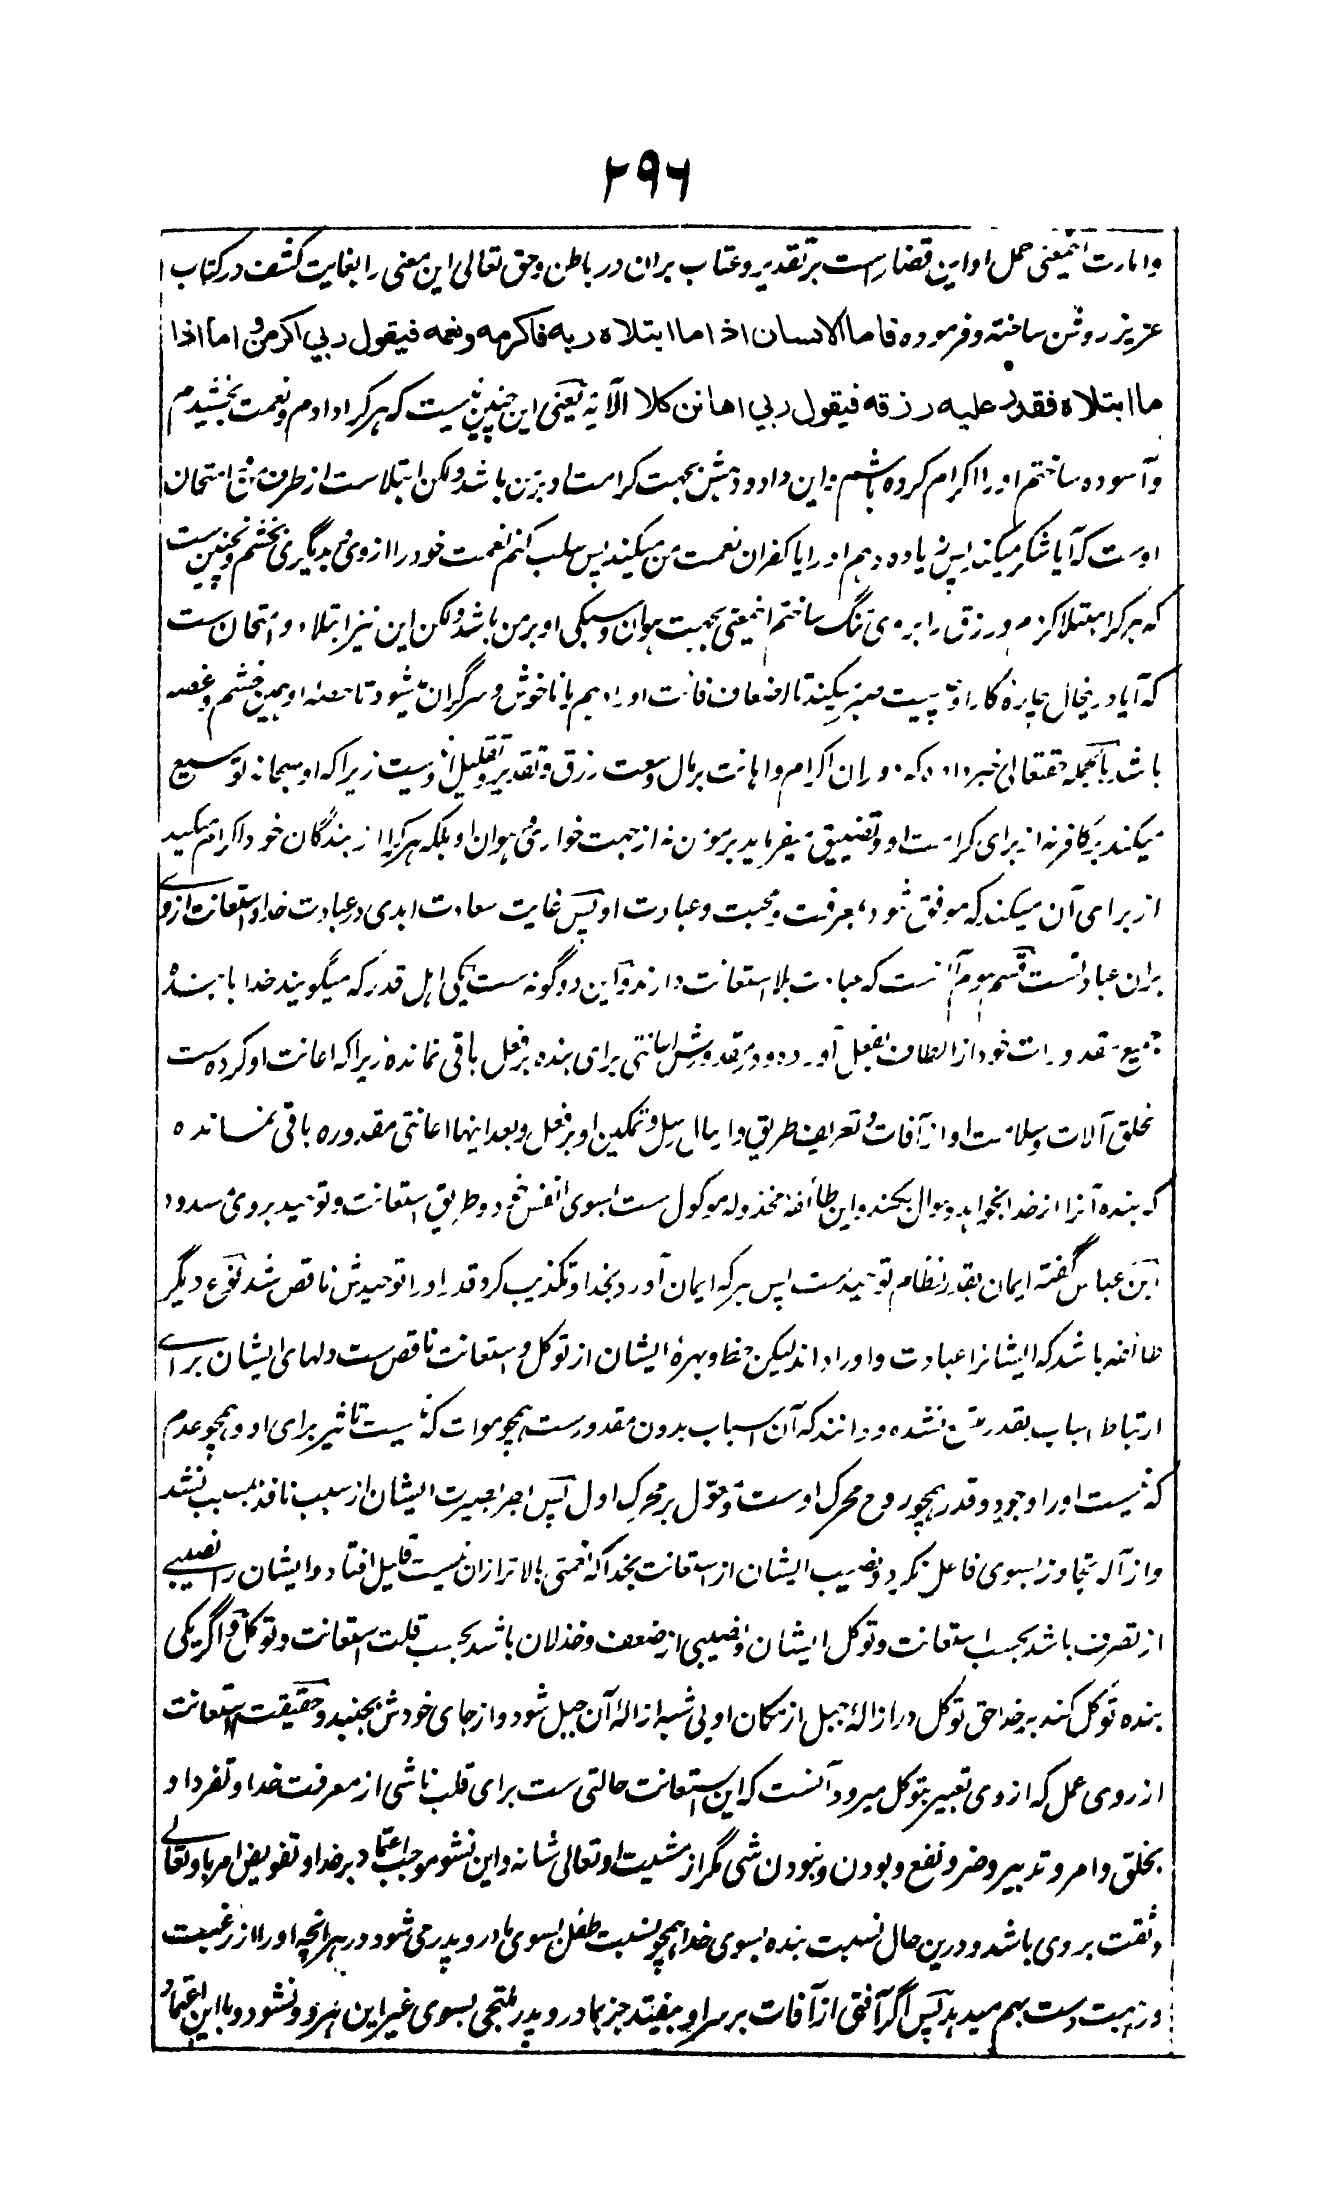 ۲۹۶
و امارت اینمعنی حمل او این قضا راست بر تقدیر و عتاب بران در باطن و حق تعالی این معنی را بغایت کشف در کتاب
عزیز روشن ساخته و فرموده فاما الانسان اذا ما ابتلاه ربه فاکرمه ونعمه فیقول ربی اکرمن و اما اذا
ما ابتلاه فقدر علیه رزقه فیقول ربی اهانن کلا الآیه یعنی این چنین نیست که هر کرا دادم و نعمت بخشیدم
و آسوده ساختم او را اکرام کرده باشم و این داد و دهش بجهت کرامت او بر من باشد ولکن ابتلاست از طرف من و امتحان
اوست که آیا شکر میکند پس زیاده دهم او را یا کفران نعمت من میکند پس سلب کنم نعمت خود را از وی و بدیگری بخشم و نچنین ست
که هر کرا مبتلا کردم و رزق را بر وی تنگ ساختم اینمعنی بجهت هوان و سبکی او بر من باشد ولکن این نیز ابتلاء و امتحان ست
که آیا درینحال چاره کار او چیست صبر میکند تا اضعاف فائت او را دهم یا ناخوش و سرگران میشود تا حصه او همین خشم و غصه
باشد بالجمله حقتعالی خبر داده که دوران اکرام و اهانت بر مال و وسعت رزق و تقدیر و تقلیل او نیست زیرا که او سبحانه توسیع
میکند بر کافر نه از برای کرامت او و تضییق میفرماید بر مومن نه از جهت خواری و هوان او بلکه هر کرا از بندگان خود اکرام میکند
از برای آن میکند که موفق شود بمعرفت و محبت و عبادت او پس غایت سعادت ابدی در عبادت خدا و استعانت از وی
بران عبادتست قسم سوم آنست که عبادت بلا استعانت دارند و این دو گونه ست یکی اهل قدر که میگویند خدا با بنده
جمیع مقدورات خود از الطاف بفعل آورده و در مقدورش اعانتی برای بنده بر فعل باقی نمانده زیرا که اعانت او کرده ست
بخلق آلات و سلامت او از آفات و تعریف طریق و ارسال رسل و تمکین او بر فعل و بعد اینها اعانتی مقدوره باقی نمانده
که بنده آنرا از خدا بخواهد و سوال بکند و این طائفه مخذوله موکول ست بسوی انفس خود و طریق استعانت و توحید بر وی مسدود
ابن عباس گفته ایمان بقدر نظام توحیدست پس هر که ایمان آورد بخدا و تکذیب کرد قدر او را توحیدش ناقص شد نوع دیگر
طائفه باشد که ایشانرا عبادت و اوراد اند لیکن حظ و بهره ایشان از توکل و استعانت ناقص ست دلهای ایشان برای
ارتباط اسباب بقدر متسع نشده و ندانند که آن اسباب بدون مقدورست همچو موات که نیست تاثیر برای او و همچو عدم
که نیست او را وجود و قدر همچو روح محرک اوست و معول بر محرک اول پس اجر بصیرت ایشان از سبب نافذ بمسبب نشد
و از آله متجاوز بسوی فاعل نگردید و نصیب ایشان از استعانت بخدا که نعمتی بالاتر ازان نیست قلیل افتاد و ایشان را نصیبی
از تصرف باشد بحسب استعانت و توکل ایشان و نصیبی از ضعف و خذلان باشد بحسب قلت استعانت و توکل و اگر یکی
بنده توکل کند بر خدا حق توکل در ازالهٔ جبل از مکان او بی شبه ازالهٔ آن جبل شود و از جای خودش بجنبد و حقیقت استعانت
از روی عمل که از وی تعبیر بتوکل میرود آنست که این استعانت حالتی ست برای قلب ناشی از معرفت خدا و تفرد او
بخلق و امر و تدبیر و ضر و نفع و بودن و نبودن شی مگر از مشیت او تعالی شانه و این نشو موجب اعتماد بر خدا و تفویض امر باو تعالی
و ثقت بر وی باشد و درین حال نسبت بنده بسوی خدا همچو نسبت طفل بسوی مادر و پدر می شود در هر آنچه او را از رغبت
و رهبت دست بهم میدهد پس اگر آفتی از آفات بر سر او بیفتد جز بمادر و پدر ملتجی بسوی غیر این هر دو نشود و با این اعتماد